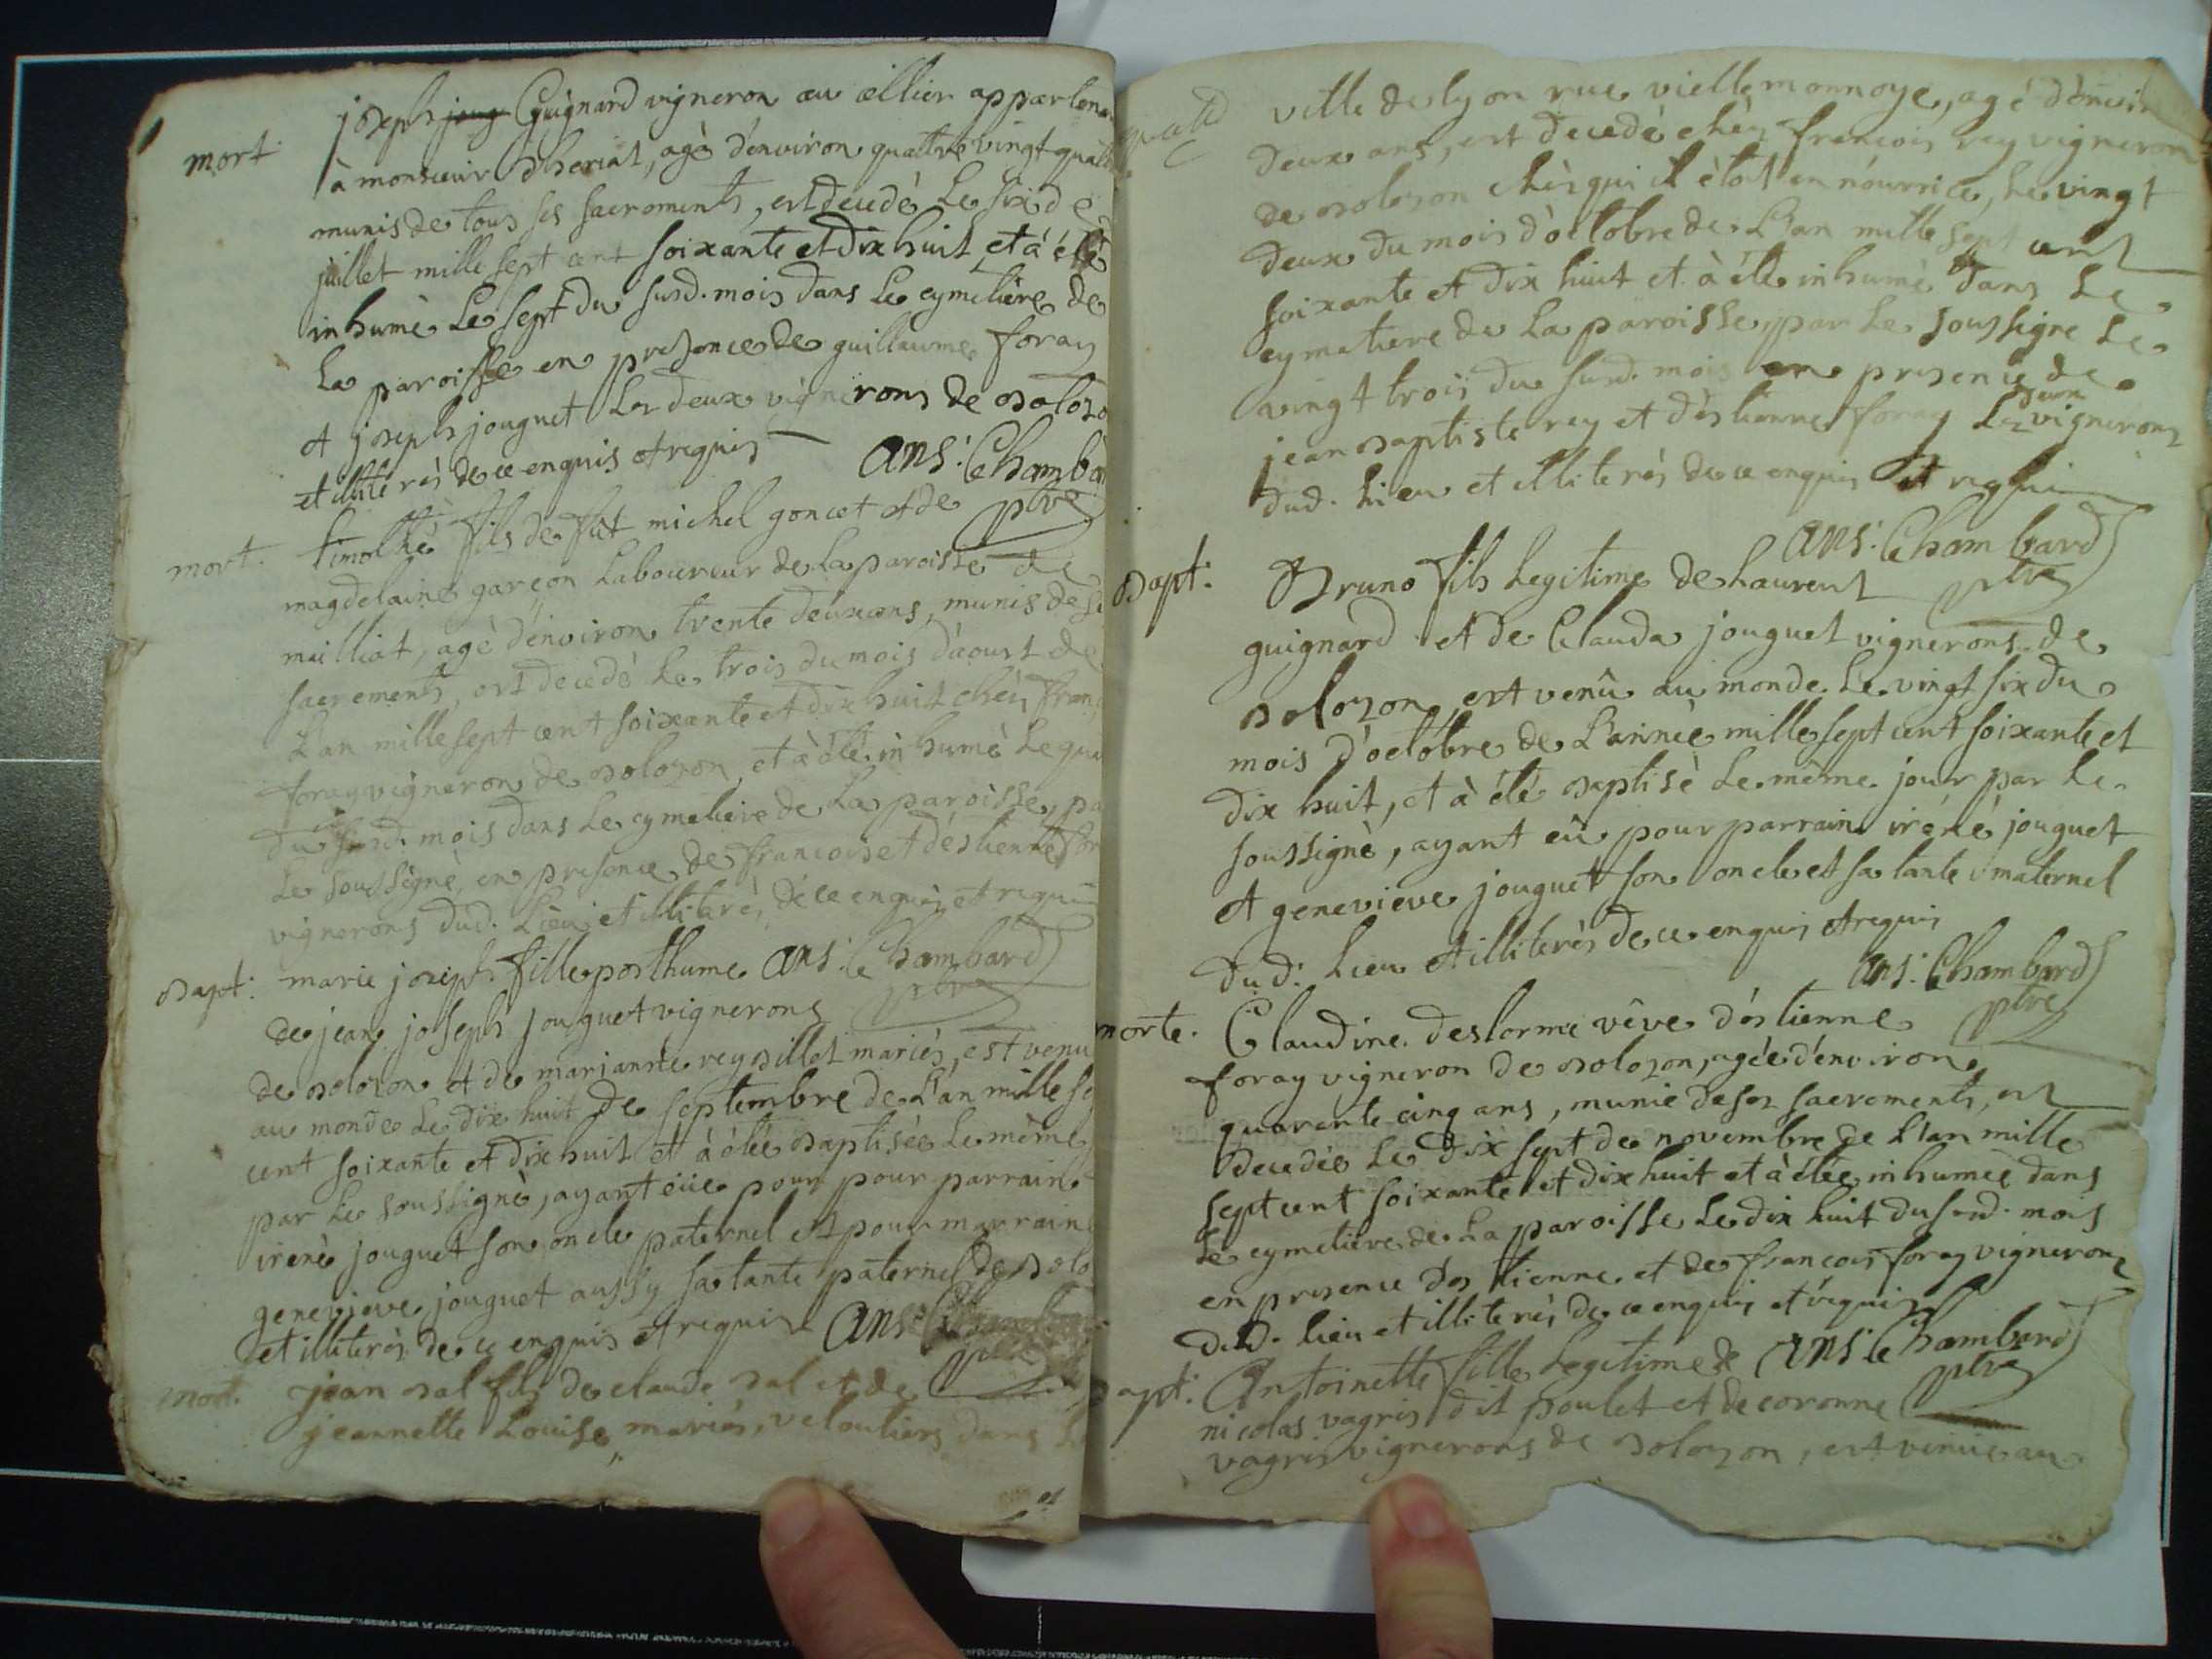 mort.
joseph joug Guignard vigneron au cellier appartena
à monsieur Dhoriat, agè d'environ quattre vingt quat
munis de tous ses sacroments, est decedè Le six de
juillet mille sept cent soixante et dix huit, et à étè
inhumè Le sept du susd. mois dans Le cymetière de
La paroisse en presence de guillaume foray
et joseph jouguet Les deux vignerons de Bolozo
et illiterés de ce enquis et requis ans: Chamba
ptre
mort.
timothé fils de fût michel goncet et de
magdelaine garçon Laboureur de La paroisse de
mailliat, agè d'environ trente deux ans, munis de s
sacrements, est decedè Le trois du mois d'aoust de
L'an mille sept cent soixante et dix huit chés fran
foray vigneron de Bolozon et à été inhumè Le qua
du susd. mois dans Le cymetiere de La paroisse, pa
Le soussigné, en presence de francois et d'éstienne for
vignerons dud. Lieu, et illiterés de ce enquis et requis
bapt:
marie joseph fille posthume ans: Chambard
ptre
de jean joseph jouguet vignerons
de Bolozon et de marianne rey Billet mariés, est venu
au monde Le dix huit de septembre de L'an mille se
cent soixante et dix huit et à étée Baptisée Le même
par Le soussignè, ayant eüe pour pour parrain
irenè jouguet son oncle paternel et pour marrain
genevieve jouguet aussy sa tante paternel de Bolo
et illiterés de ce enquis et requis ans:
ptre
mort.
jean Bal fils de claude Bal et de
jeannette Louise mariés, veloutiers dans La
ville de lyon rue vielle monnoye, agé d'envir
deux ans, est decedè chés francois rey vigneron
de Bolozon chès qui il étoit en nourrice, Le vingt
deux du mois d'octobre de L'an mille sept cent
soixante et dix huit et à été inhumè dans Le
cymetiere de La paroisse, par Le soussigne Le
vingt trois du susd. mois en presence de
jean Baptiste rey et d'éstienne foray Les deux vignerons
dud. Lieu et illiterés de ce enquis et requis
ans: Chambard
ptre
Bapt:
Bruno fils Legitime de Laurent
guignard et de Clauda jouguet vignerons de
Bolozon, est venû au monde Le vingt six du
mois d'octobre de L'année mille sept cent soixante et
dix huit, et à été Baptisè Le même jour par Le
soussignè, ayant eû pour parrain iréné jouguet
et genevieve jouguet son oncle et sa tante maternel
dud. Lieu et illiterés de ce enquis et requis
ans: Chambard
ptre
morte.
Claudine deslorme vêve d'éstienne
foray vigneron de Bolozon, agée d'environ
quarente cinq ans, munie de ses sacrements, est
decedée Le dix sept de novembre de L'an mille
sept cent soixante et dix huit et à étée inhumée dans
Le cymetiere de La paroisse Le dix huit du susd. mois
en presence d'éstienne et de francois foray vignerons
dud. lieu et illiterés de ce enquis et requis
ans: Chambard
ptre
Bapt:
Antoinette fille Legitime de
nicolas vagris dit poulet et de coronne
vagris vignerons de Bolozon, est venue au